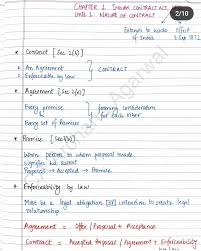 CHAPTER 1 INDIAN CONTRACT ACT,
UNIT 1: NATURE OF CONTRACT
2/10
Extends to whole of India
Effect
1 Sep 1872
* Contract [Sec 2(h)]
1. An Agreement
2. Enforceable by law
CONTRACT
* Agreement [Sec 2(e)]
Every promise
Every set of Promises
forming consideration
for each other
* Promise [Sec 2(b)]
When person to whom proposal made
signifies his assent
Proposal → Accepted → Promise
* Enforceability by law
Must be a legal obligation OR intention to create legal
relationship
Agreement = Offer / Proposal + Acceptance
Contract = Accepted Proposal / Agreement + Enforceability
by law
Agarwal